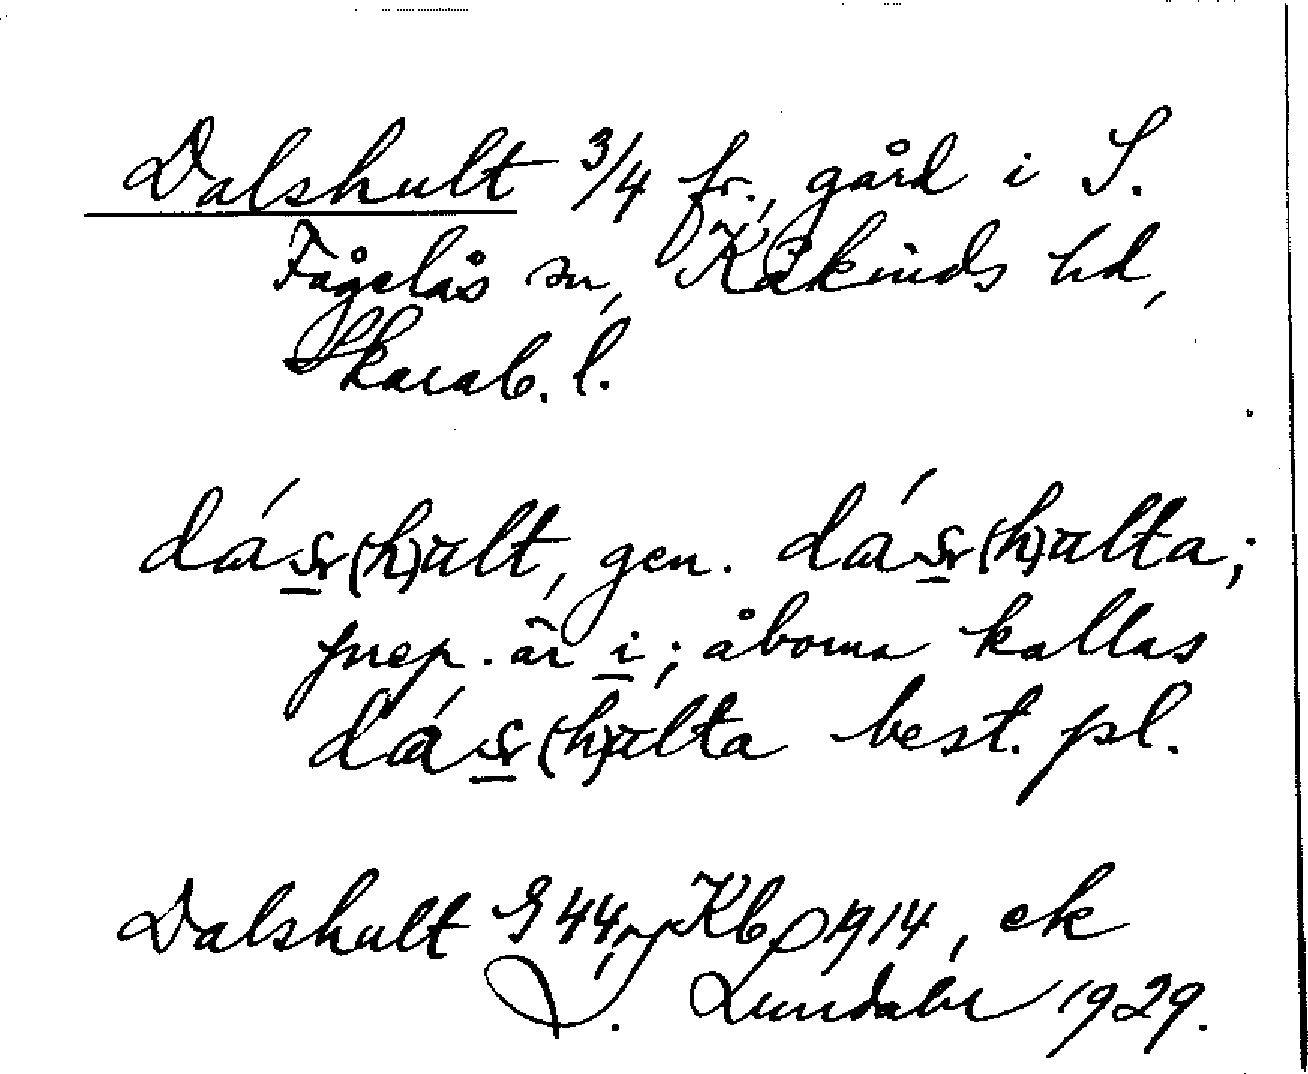 Dalshult 3/4 fr., gård i S.
Fågelås sn, Kåkinds hd,
Skarab. l.
dás(h)ult, gen. dás(h)ulta;
prep. är i; åborna kallas
dás(h)ulta best. pl.
Dalshult G 44, Kb 1914, ek
J. Lundahl 1929.